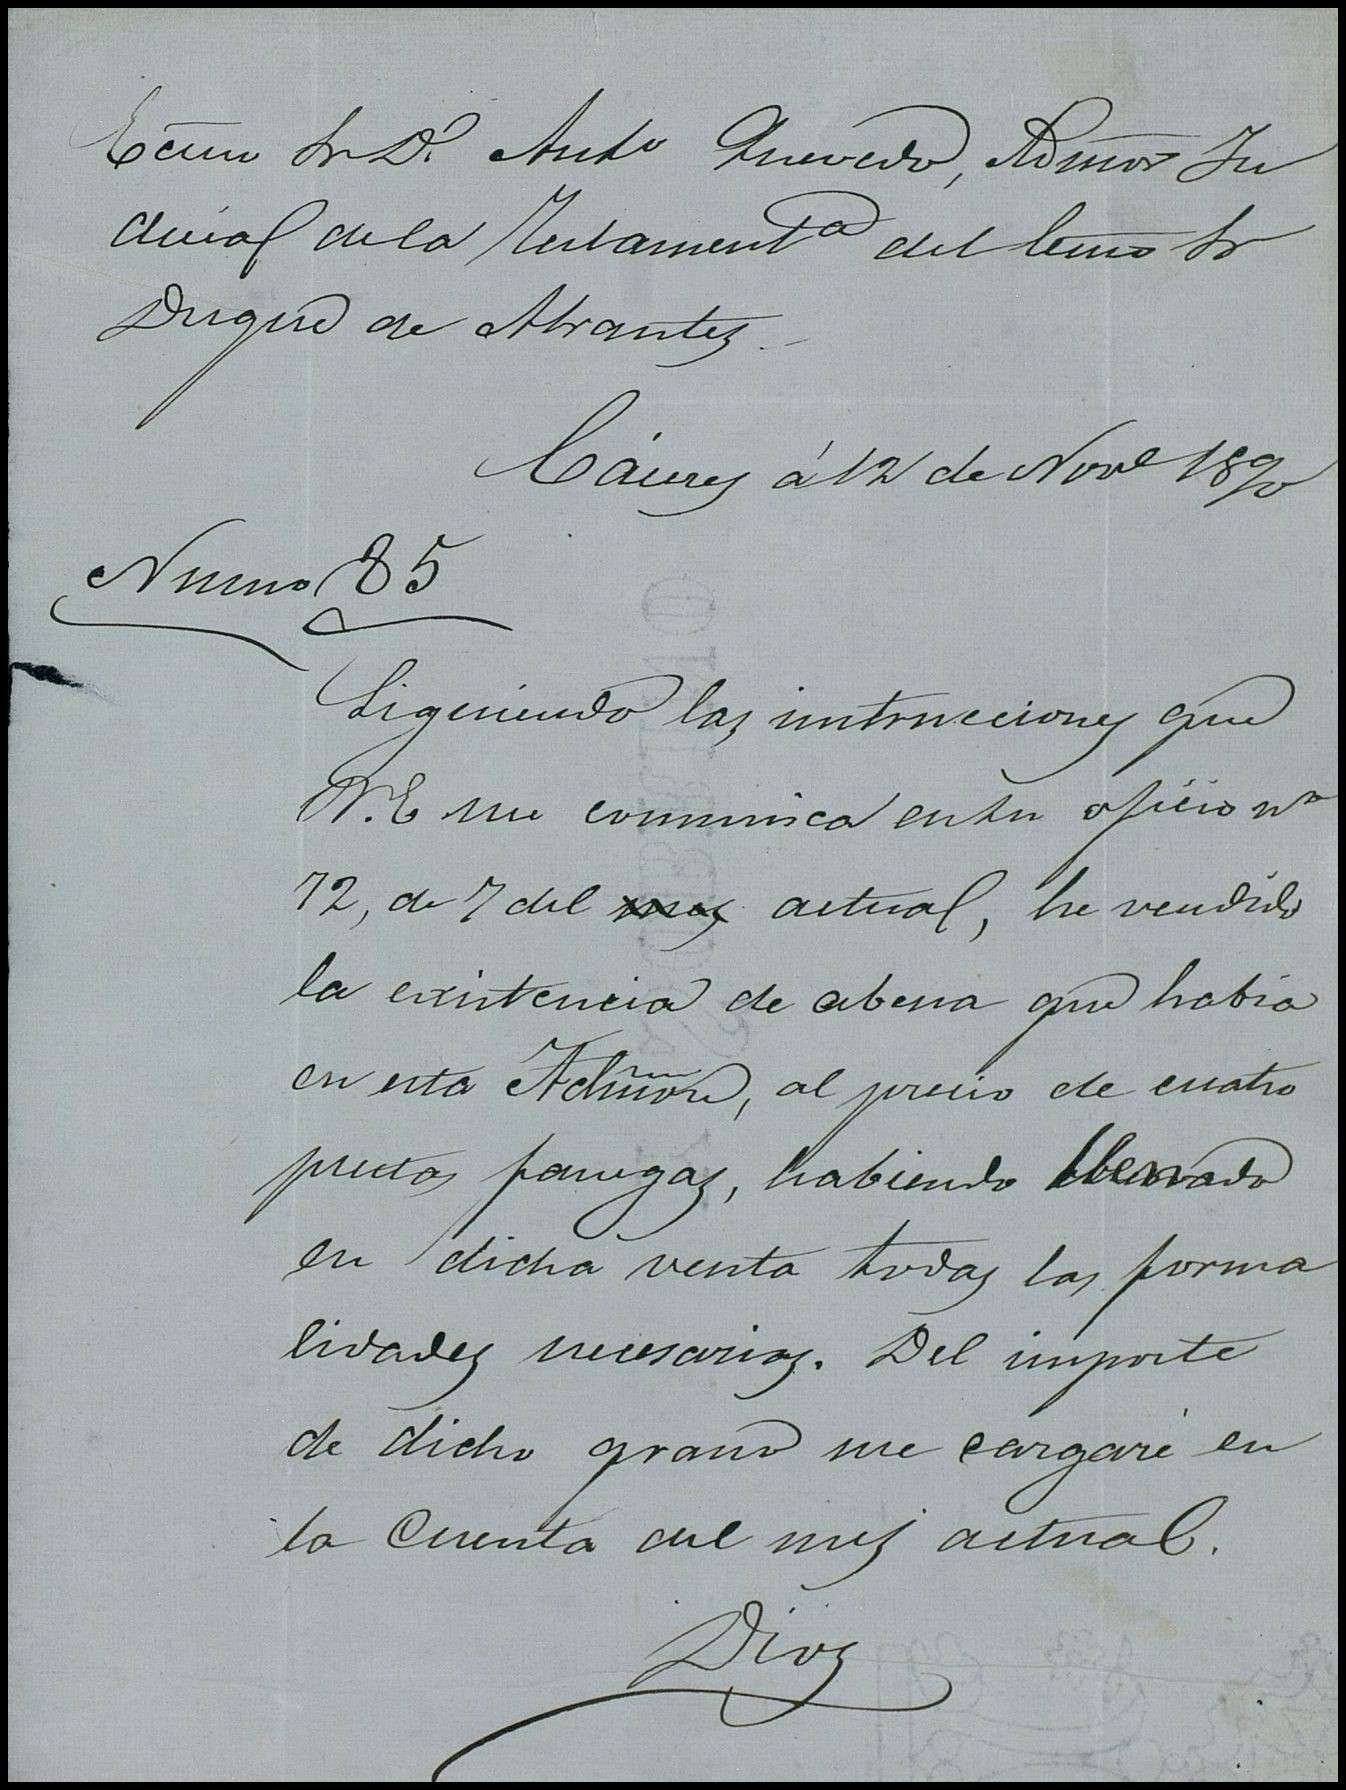 Ecmo Sr D. Anto Quevedo, Admor Ju
dicial de la Testamenta del Ecmo Sr
Duque de Abrantes.
Cáceres á 12 de Nove 1890
Numo 85
Sigeniendo las intrucciones que
V.E me comunica en su oficio no
72, de 7 del mes actual, he vendido
la existencia de abena que habia
en esta Admon, al precio de cuatro
pesetas fanegas, habiendo
en dicha venta todas las forma
lidades necesarias. Del importe
de dicho grano me cargaré en
la Cuenta del mes actual.
Dios